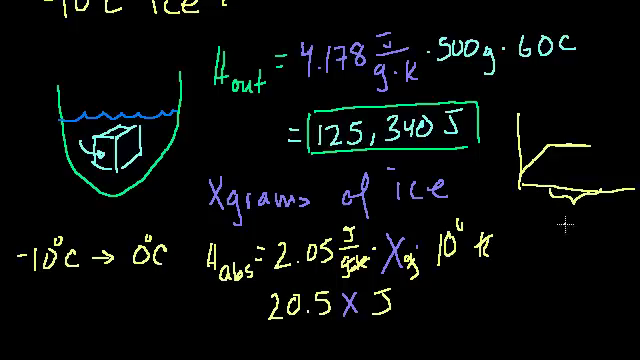 -10°C ice ?
H out = 4.178 J/g·k · 500g · 60C
= 125,340 J
X grams of ice
-10°C → 0°C H abs = 2.05 J/g·k · X g · 10° K
20.5 X J